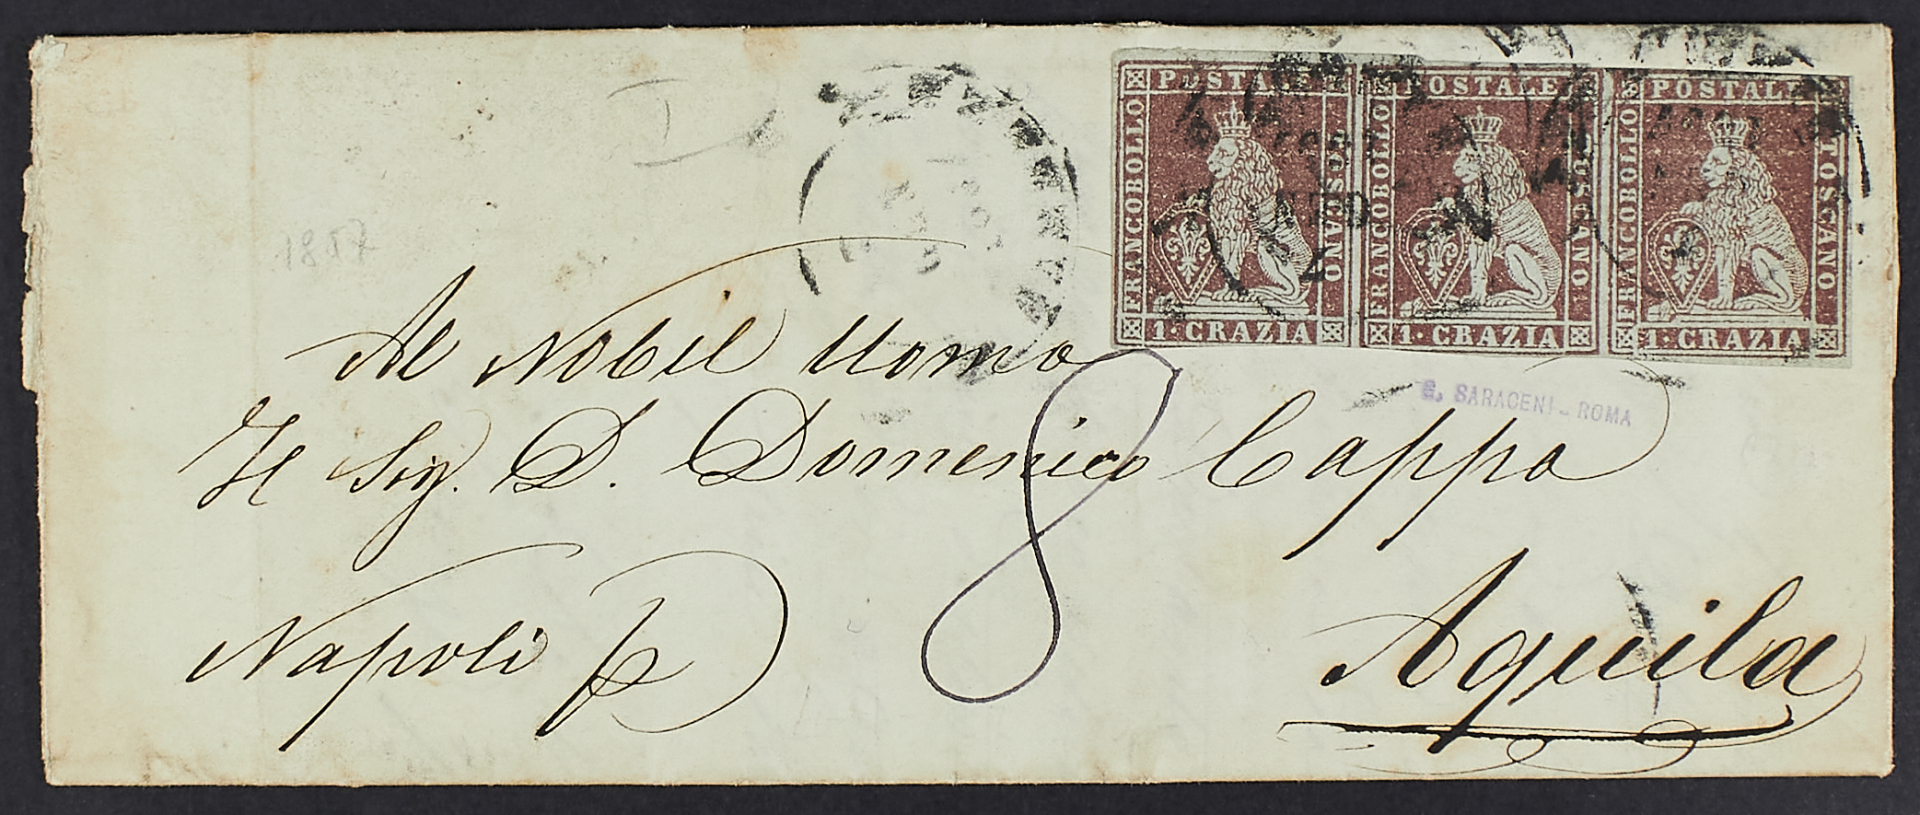 1857
POSTALE
FRANCOBOLLO
TOSCANO
1·CRAZIA
POSTALE
FRANCOBOLLO
TOSCANO
1·CRAZIA
POSTALE
FRANCOBOLLO
TOSCANO
1·CRAZIA
Al Nobil Uomo
G. SARACENI - ROMA
Il Sig. D. Domenico Cappa
8
Napoli p
Aquila